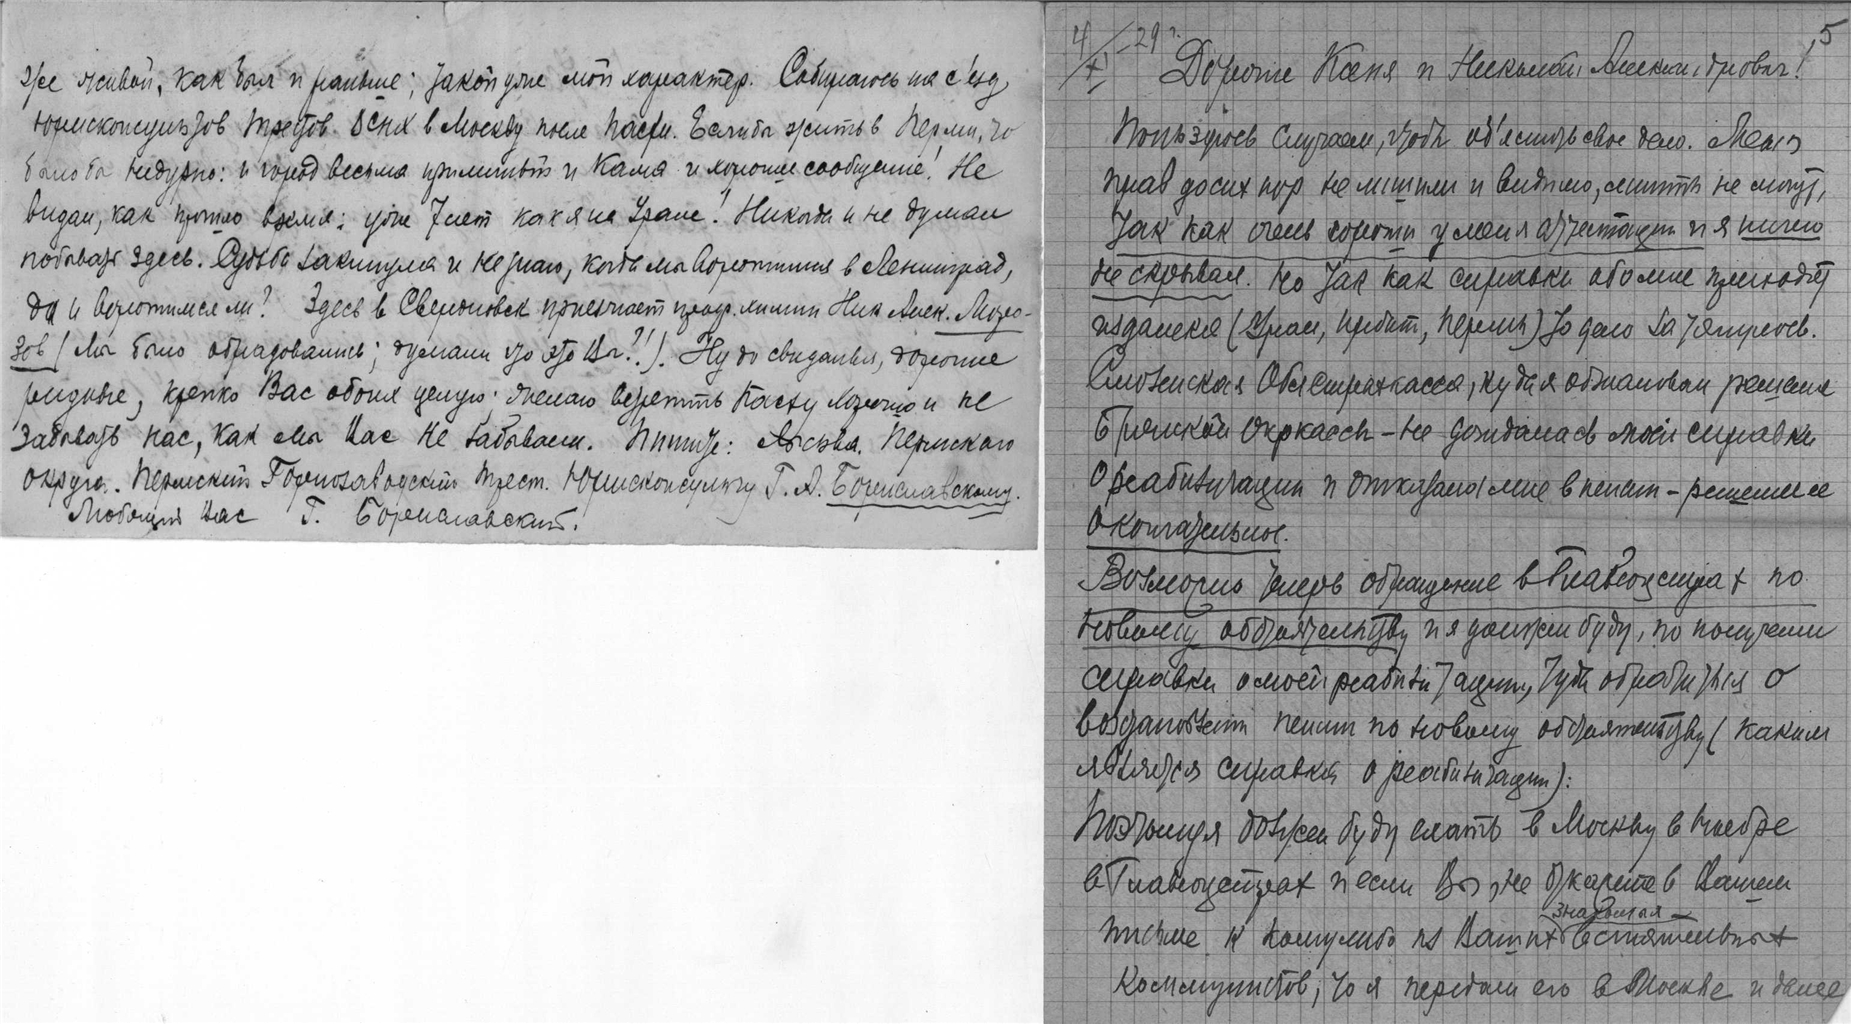 же живой, как был и раньше; такой уже мой характер. Собираюсь на с'езд
юрисконсультов трестов ВСНХ в Москву после Пасхи. Если бы жить в Перми, то
было бы недурно: и город весьма приличный и Кама и хорошее сообщение! Не
видал, как прошло время: уже 7 лет как я на Урале! Никогда и не думал
побывать здесь. Судьба закинула и не знаю, когда мы воротимся в Ленинград,
да и воротимся ли? Здесь в Свердловск приезжает проф. химии Ник. Алек. Моро-
зов (мы было обрадовались; думали что это Вы?!). Ну до свиданья, дорогие
родные, крепко Вас обоих целую; желаю встретить Пасху хорошо и не
забывать нас, как мы Вас не забываем. Пишите: Лысьва. Пермского
округа. Пермский Горнозаводский трест. Юрисконсульту Г. А. Бориславскому.
Любящий Вас Г. Бориславский.
4/XI–29 г. 5
Дорогие Ксеня и Николай Александрович!
Пользуюсь случаем, чтобы об'яснить свое дело. Меня
прав до сих пор не лишили и видимо, лишить не могут,
так как очень хороши у меня аттестации и я ничего
не скрывал. Но так как справки обо мне приходят
издалека (Урал, Ирбит, Пермь) то дело затянулось.
Смоленская Облстрахкасса, куда я обжаловал решение
Брянской Окркассы – не дождалась моей справки
о реабилитации и отказала мне в пенсии – решение
окончательное.
Возможно теперь обращение в Главсоцстрах по
новому обстоятельству и я должен буду, по получении
справки о моей реабилитации, туда обратиться о
восстановлении пенсии по новому обстоятельству (каким
является справка о реабилитации):
Поэтому я должен буду ехать в Москву в ноябре
в Главсоцстрах и если Вы не откажете в Вашем
знакомых
письме к кому либо из Ваших влиятельных
коммунистов, то я передам его в Москве и далее